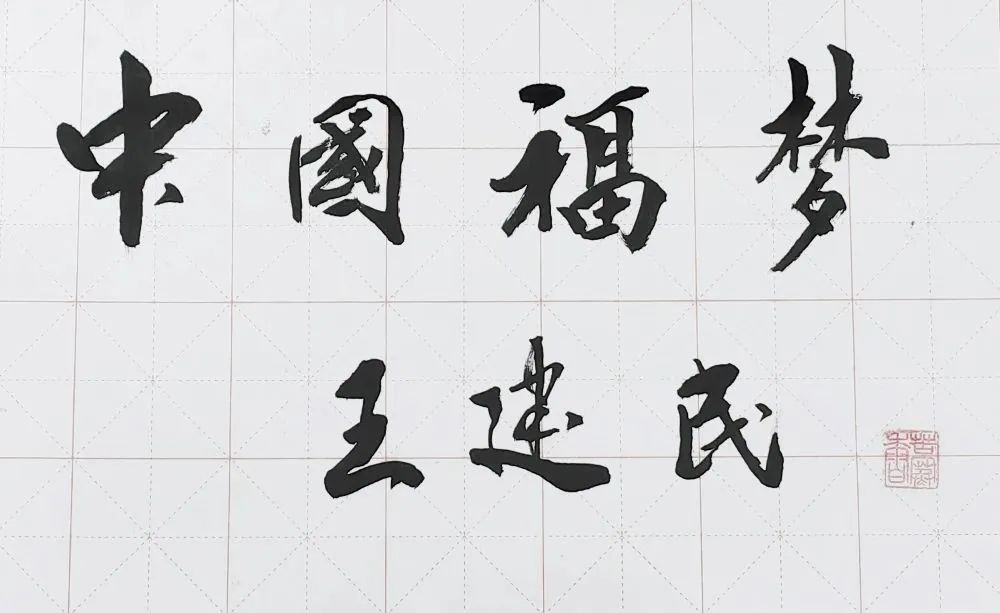 中國福梦
王建民